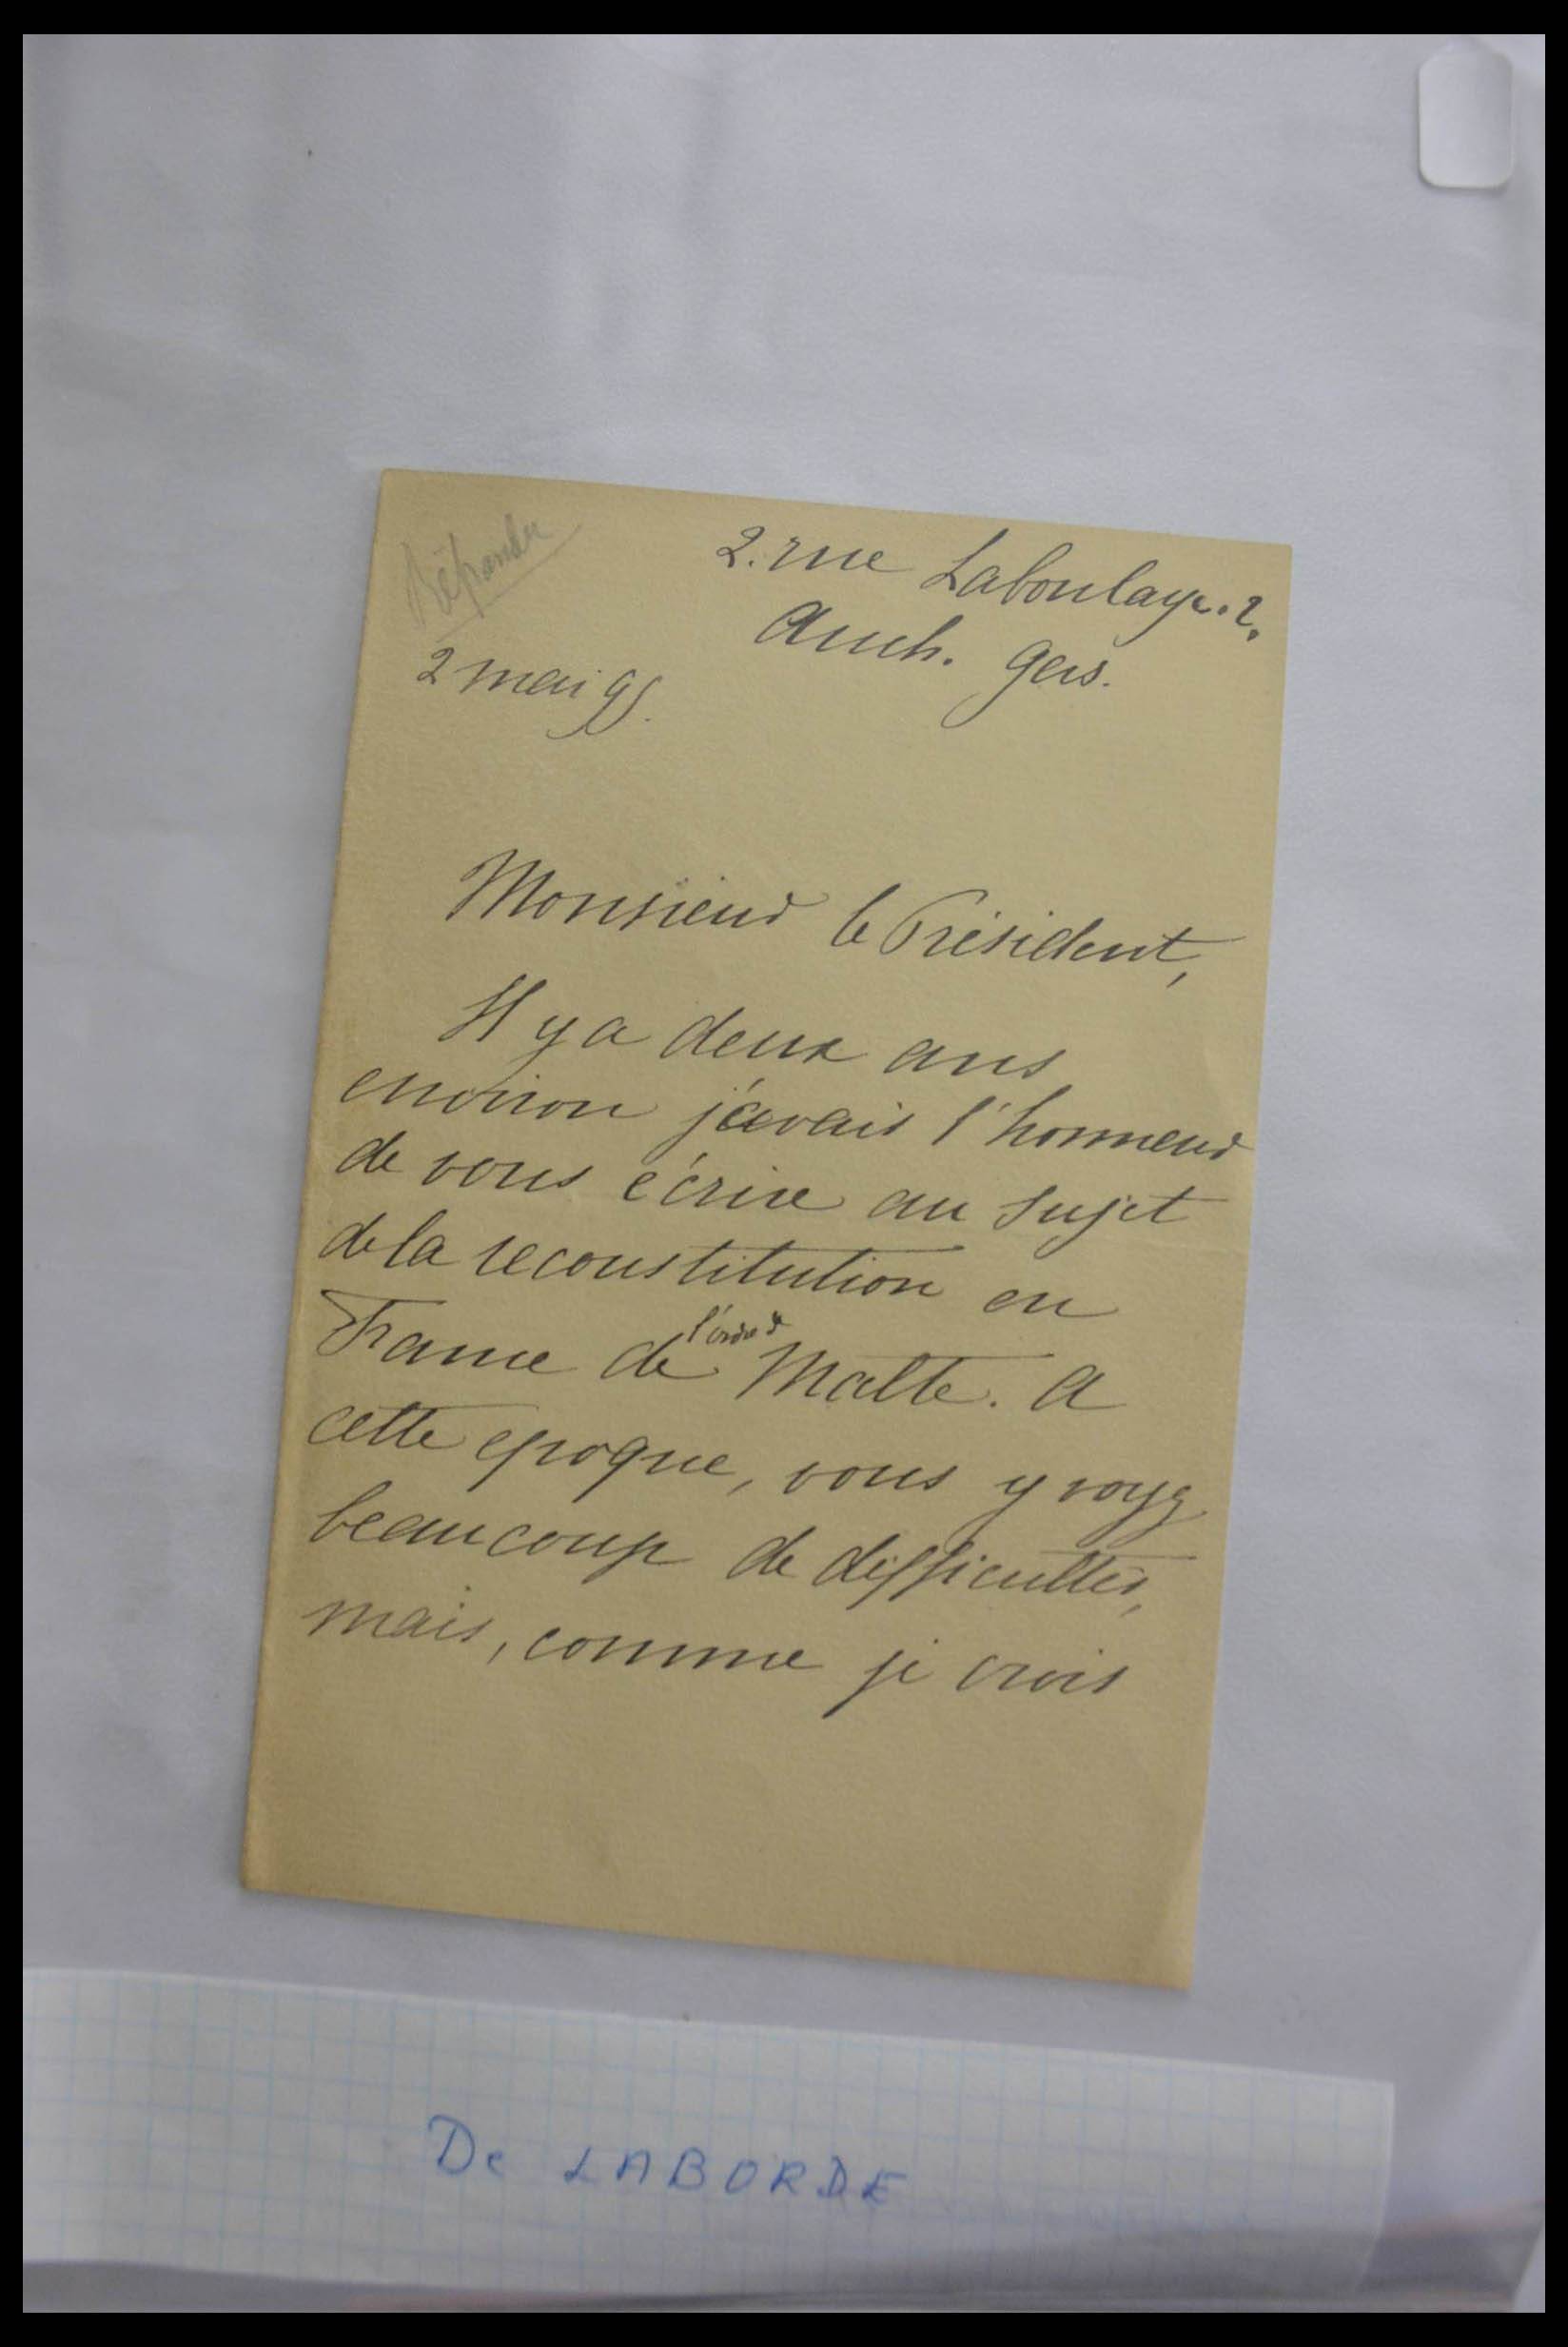 Répondre
2. rue Laboulaye. 2.
Auch. Gers.
2 mai 95.
Monsieur le Président,
Il y a deux ans
environ j'avais l'honneur
de vous écrire au sujet
de la reconstitution en
France de l'ordre d Malte. A
cette epoque, vous y voyez
beaucoup de difficultés,
mais, comme je crois
De LABORDE